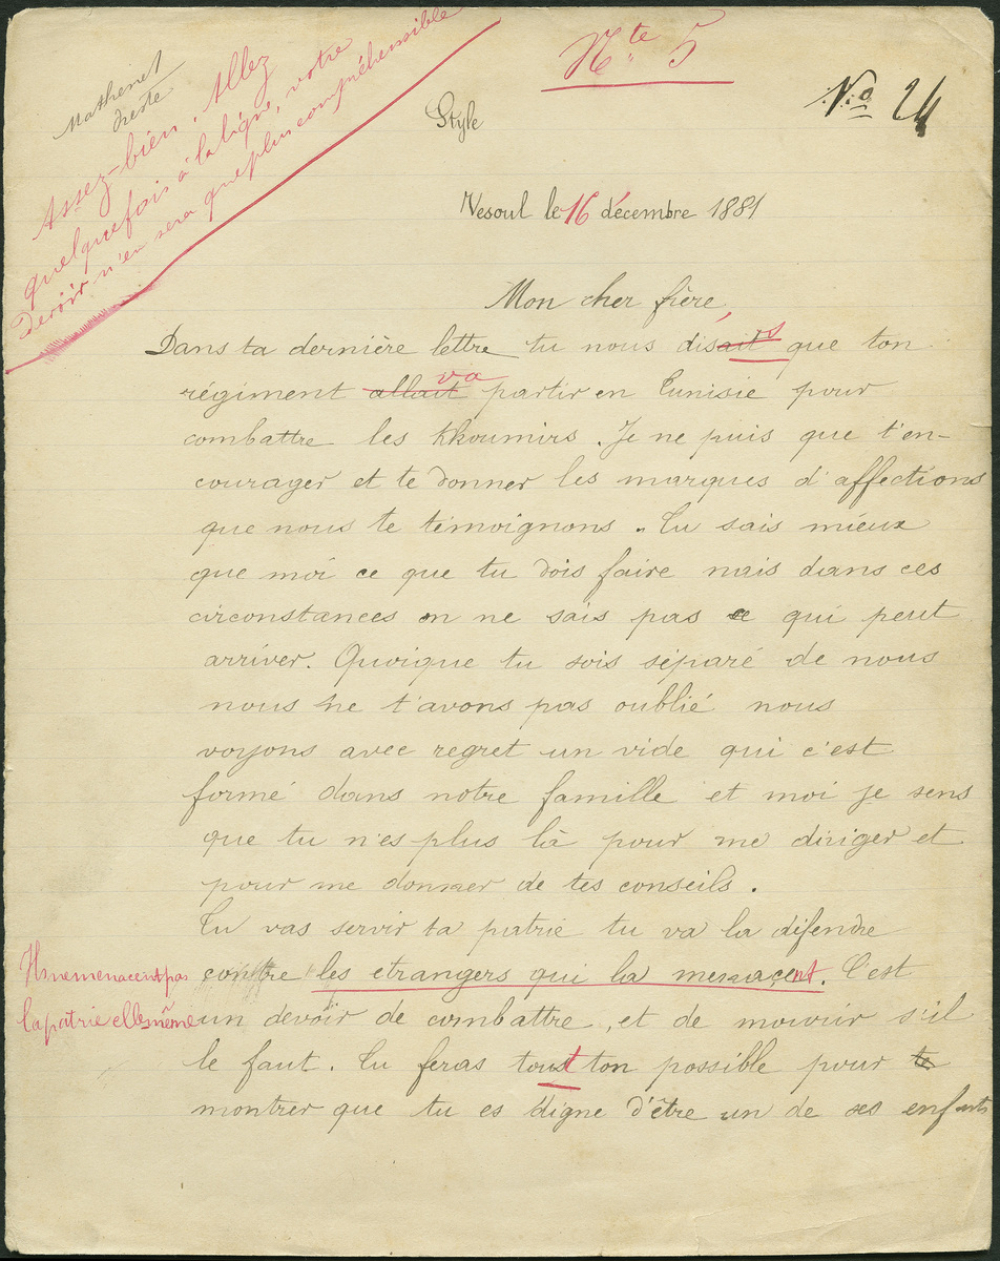 Mathenet
Assez-bien. Allez
quelquefois à la ligne, votre
devoir n'en sera que plus compréhensible
Nte 5
No 24
Style
Vesoul le 16 décembre 1881
Mon cher frère,
Dans ta dernière lettre tu nous disait s que ton
régiment allait va partir en Tunisie pour
combattre les Kkoumirs. Je ne puis que t'en-
courager et te donner les marques d'affections
que nous te témoignons. Tu sais mieux
que moi ce que tu dois faire mais dans ces
circonstances on ne sais pas ce qui peut
arriver. Quoique tu sois séparé de nous
nous ne t'avons pas oublié nous
voyons avec regret un vide qui c'est
formé dans notre famille et moi je sens
que tu n'es plus là pour me diriger et
pour me donner de tes conseils.
Tu vas servir ta patrie tu va la défendre
contre les etrangers qui la menacent. C'est
Ils ne menacent pas
la patrie elle même
un devoir de combattre, et de mourir s'il
le faut. Tu feras tout ton possible pour te
montrer que tu es digne d'être un de ses enfants